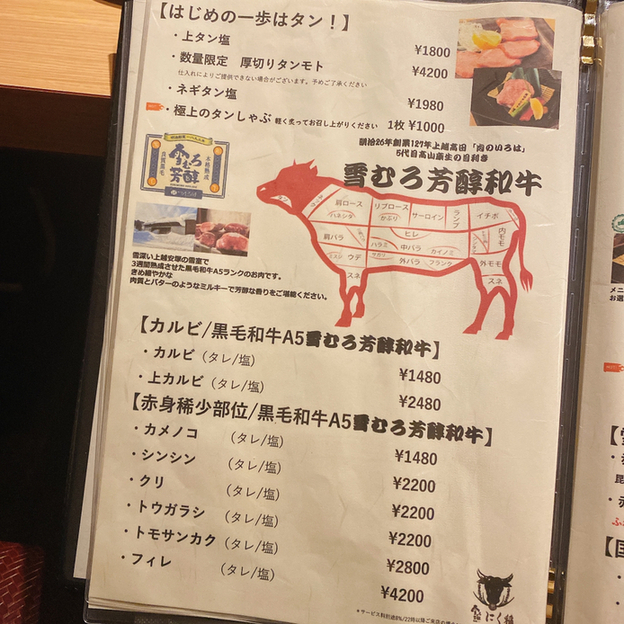 【はじめの一歩はタン！】
・上タン塩 ¥1800
・数量限定 厚切りタンモト ¥4200
仕入れによりご提供できない場合がございます。予めご了承ください
・ネギタン塩 ¥1980
・極上のタンしゃぶ 軽く炙ってお召し上がりください 1枚 ¥1000
明治26年創業127年上越高田「肉のいろは」
5代目高山康生の目利き
雪むろ芳醇和牛
雪むろ
芳醇
肩ロース
リブロース
サーロイン
ランプ
イチボ
ハネシタ
かぶり
ヒレ
内モモ
肩バラ
ハラミ
中バラ
カイノミ
ウデ
外バラ
フランク
外モモ
スネ
スネ
雪深い上越安塚の雪室で
3週間熟成させた黒毛和牛A5ランクのお肉です。
きめ細やかな
肉質とバターのようなミルキーで芳醇な香りをご堪能ください。
【カルビ/黒毛和牛A5雪むろ芳醇和牛】
・カルビ (タレ/塩) ¥1480
・上カルビ (タレ/塩) ¥2480
【赤身稀少部位/黒毛和牛A5雪むろ芳醇和牛】
・カメノコ (タレ/塩) ¥1480
・シンシン (タレ/塩) ¥2200
・クリ (タレ/塩) ¥2200
・トウガラシ (タレ/塩) ¥2200
・トモサンカク (タレ/塩) ¥2800
・フィレ (タレ/塩) ¥4200